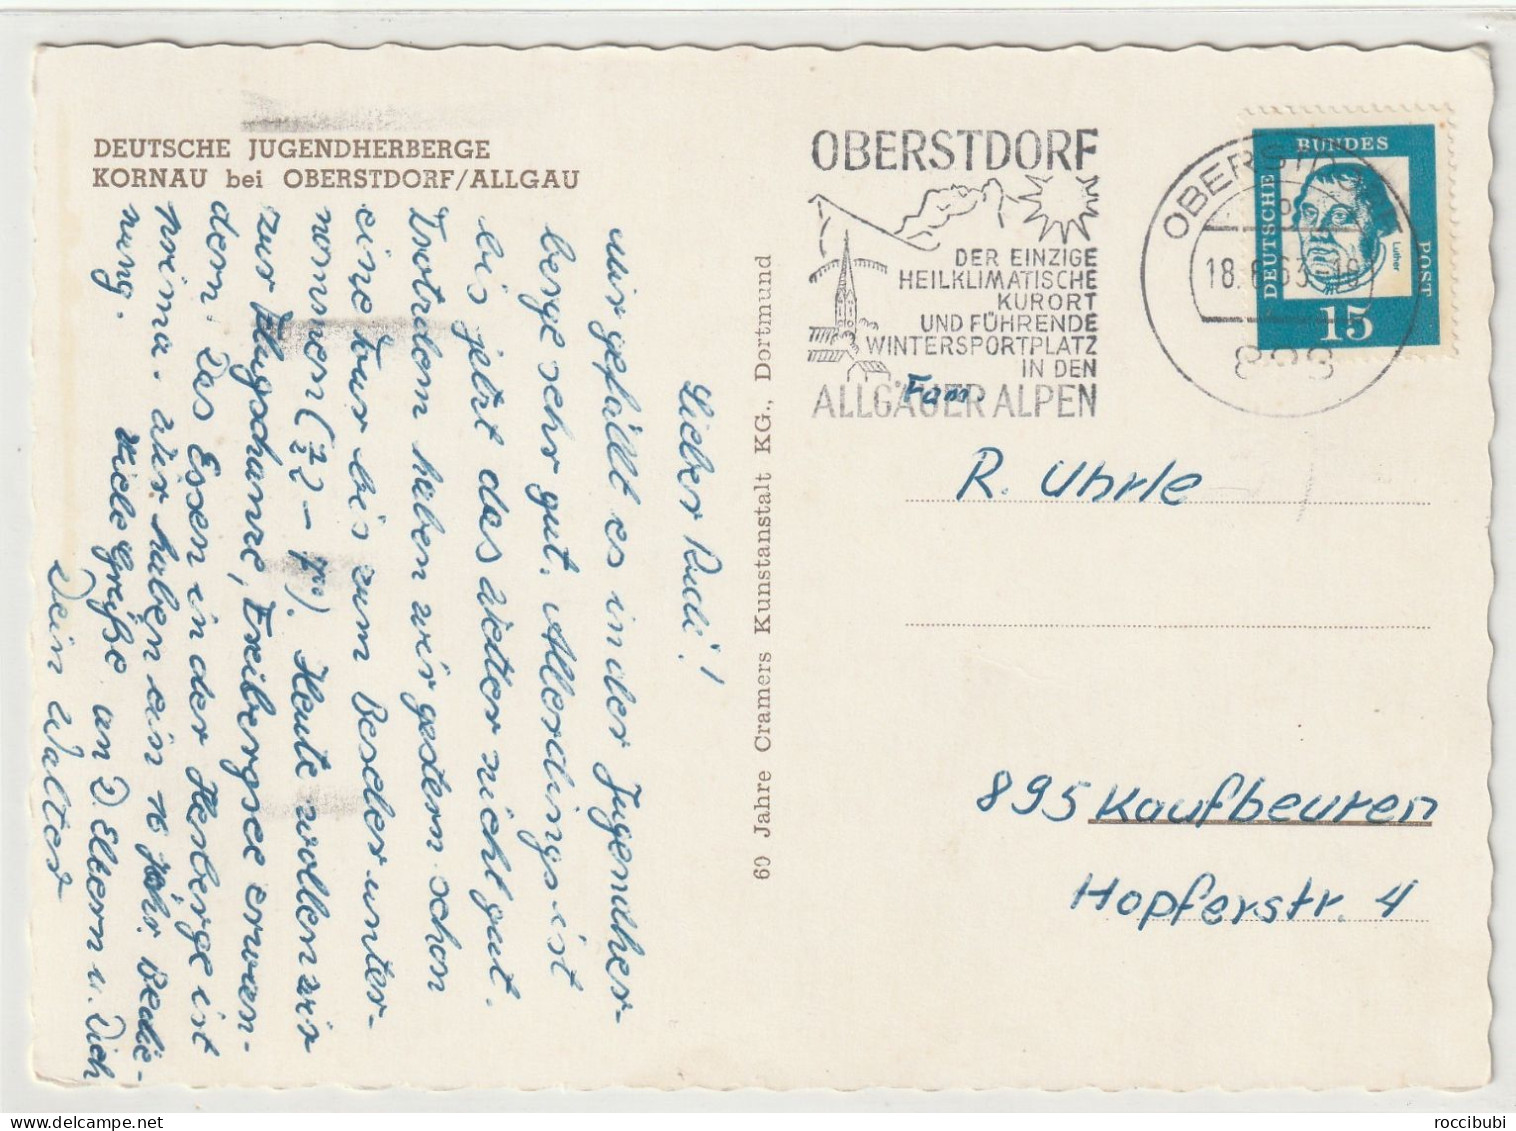 DEUTSCHE JUGENDHERBERGE
KORNAU bei OBERSTDORF/ALLGAU
Lieber Rudi!
Mir gefällt es in der Jugendher-
berge sehr gut. Allerdings ist
bis jetzt das Wetter nicht gut.
Trotzdem haben wir gestern schon
eine Tour bis zum Besler unter-
nommen ( ). Heute wollen wir
zur Flugschanze, Freibergsee erwan-
dern. Das Essen in der Herberge ist
prima. Wir haben ein 16 jähr. Bedie-
nung. Viele Grüße an D. Eltern u. Dich
Dein Walter
60 Jahre Cramers Kunstanstalt KG., Dortmund
OBERSTDORF
DER EINZIGE
HEILKLIMATISCHE
KURORT
UND FÜHRENDE
WINTERSPORTPLATZ
IN DEN
ALLGÄUER ALPEN
OBERSTDORF
18.6.63-18
898
BUNDES
DEUTSCHE
POST
Luther
15
Fam.
R. Uhrle
895 Kaufbeuren
Hopferstr. 4
roccibubi